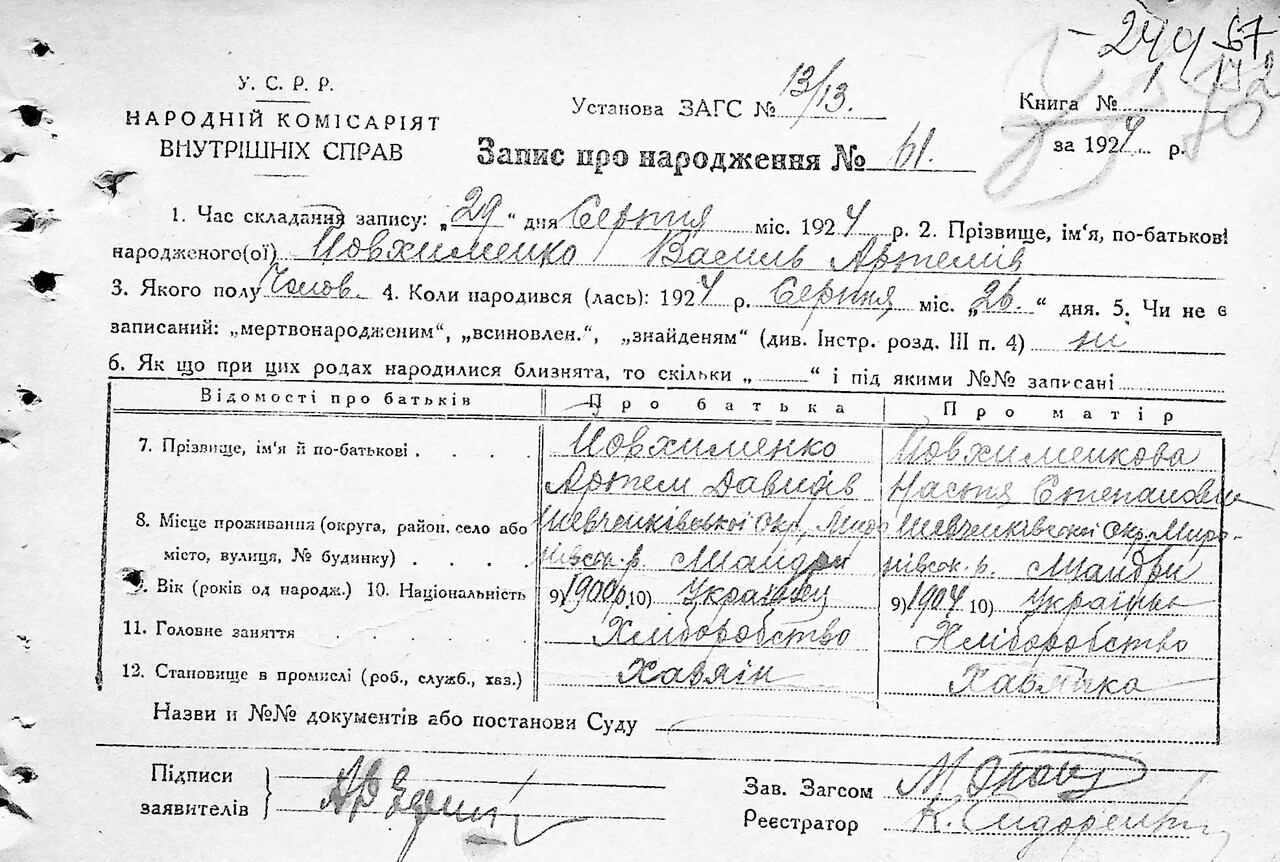 - 244 57
У. С. Р. Р.
НАРОДНІЙ КОМІСАРІЯТ
ВНУТРІШНІХ СПРАВ
Установа ЗАГС № 13/13.
Книга № 1
за 1924 р.
Запис про народження № 61.
1. Час складання запису: „29“ дня Серпня міс. 1924 р. 2. Прізвище, ім‘я, по-батькові
народженого(ої) Йовхименко Василь Артемів
3. Якого полу Чолов. 4. Коли народився (лась): 1924 р. Серпня міс. „26.“ дня. 5. Чи не є
записаний: „мертвонародженим“, „всиновлен.“, „знайденям“ (див. Інстр. розд. III п. 4) ні
6. Як що при цих родах народилися близнята, то скільки „ “ і під якими №№ записані
Відомості про батьків Про батька Про матір
7. Прізвище, ім‘я й по-батькові . . . . Йовхименко Йовхименкова
Артем Давидів Настя Степановна
8. Місце проживання (округа, район, село або Шевченківської Окр., Миро Шевченківської Окр. Миро-
місто, вулиця, № будинку) . . . . нівськ. р. нівськ. р.
9. Вік (років од народж.) 10. Національність 9) 1900 10) Українец 9) 1904 10) Українка
11. Головне заняття . . . . . Хліборобство Хліборобство
12. Становище в промислі (роб., служб., хаз.) Хазяін Хазяйка
Назви и №№ документів або постанови Суду
Підписи
заявителів
Зав. Загсом
Реєстратор К. Сидоренко